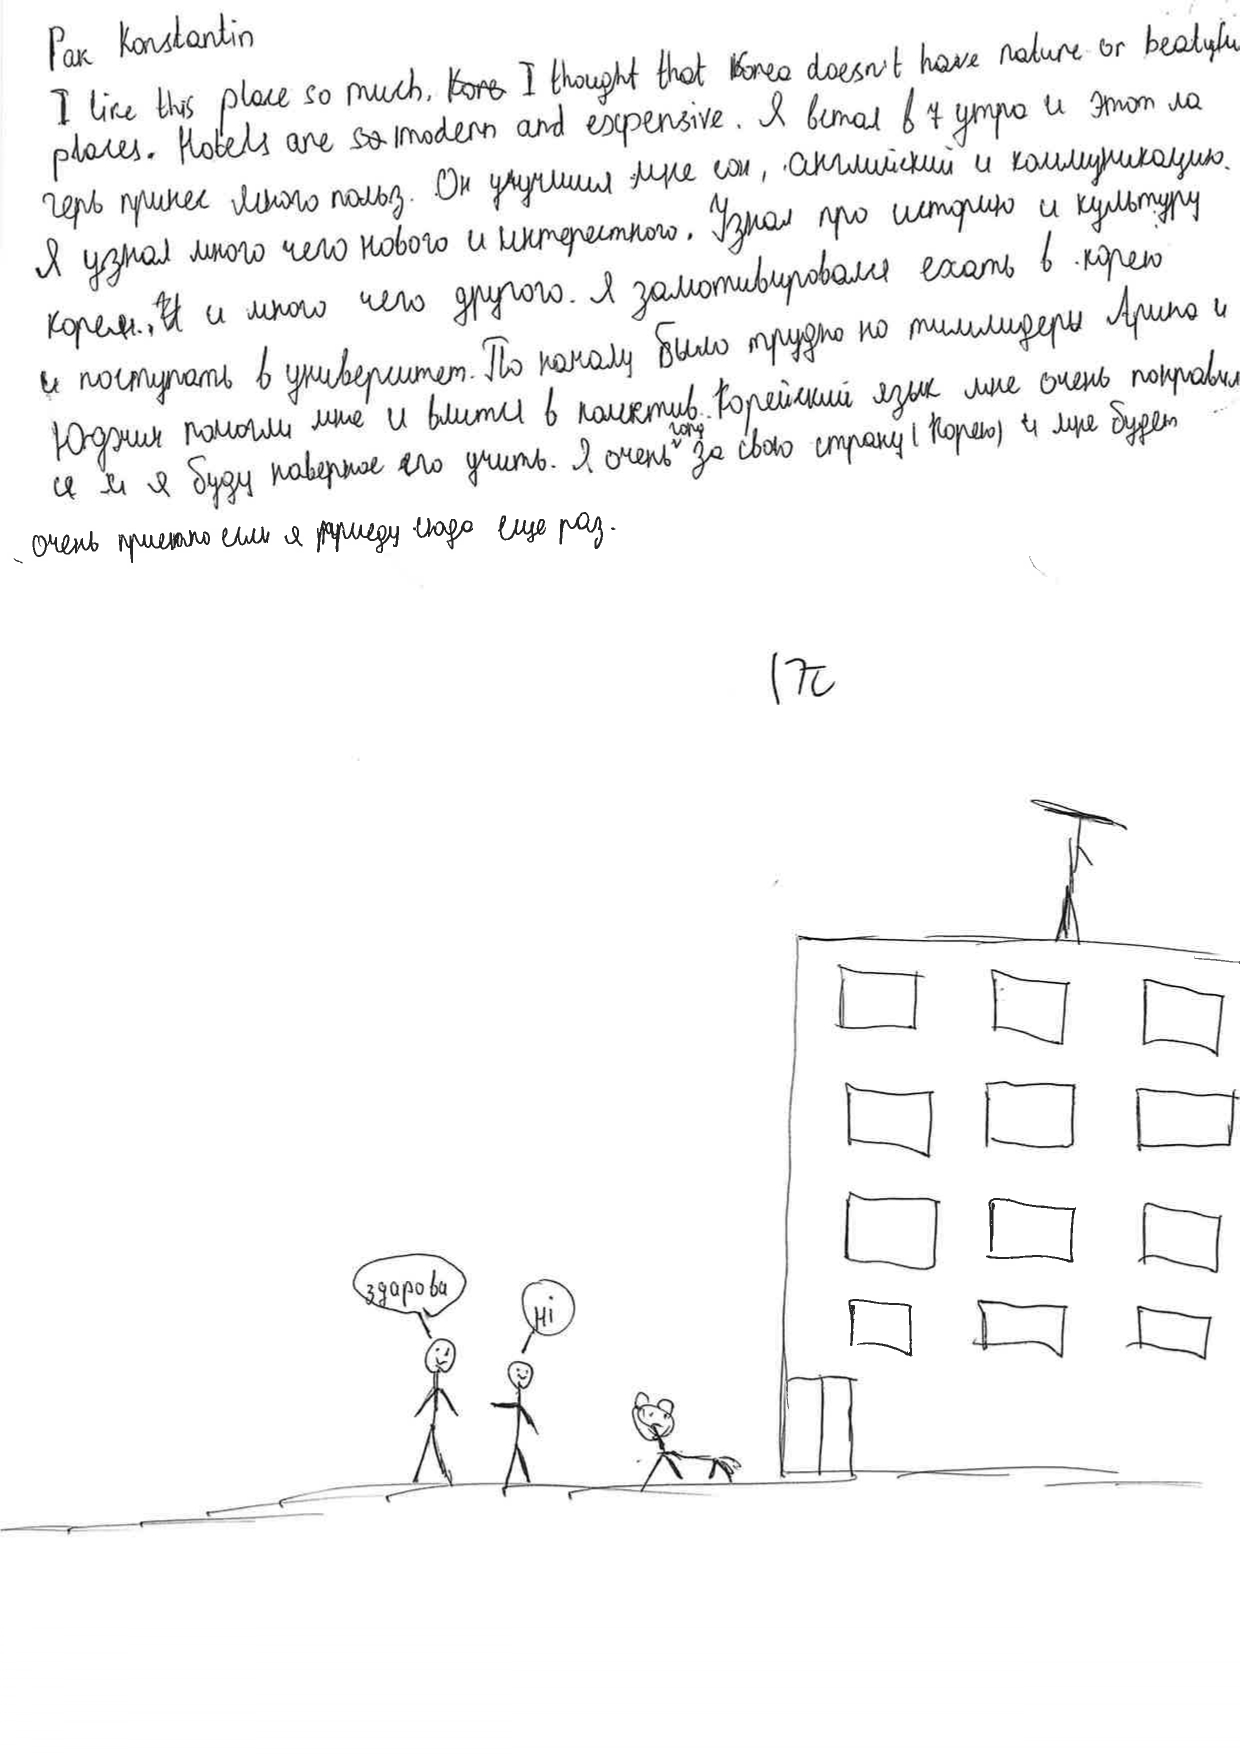 Pak Konstantin
I like this place so much. Kore I thought that Korea doesn't have nature or beatyfu
places. Hotels are so modern and expensive. Я встал в 7 утра и этот ла
герь принес много польз. Он улучшил мне сон, английский и коммуникацию.
Я узнал много чего нового и интерестного. Узнал про историю и культуру
кореи, и много чего другого. Я замотивировался ехать в корею
и поступать в университет. По началу было трудно но тимлидеры Арина и
Юджин помогли мне и влится в колектив. Корейский язык мне очень понравил
ся и я буду наверное его учить. Я очень горд за свою страну (Корею) и мне будет
очень приятно если я приеду сюда еще раз.
здарова
Hi